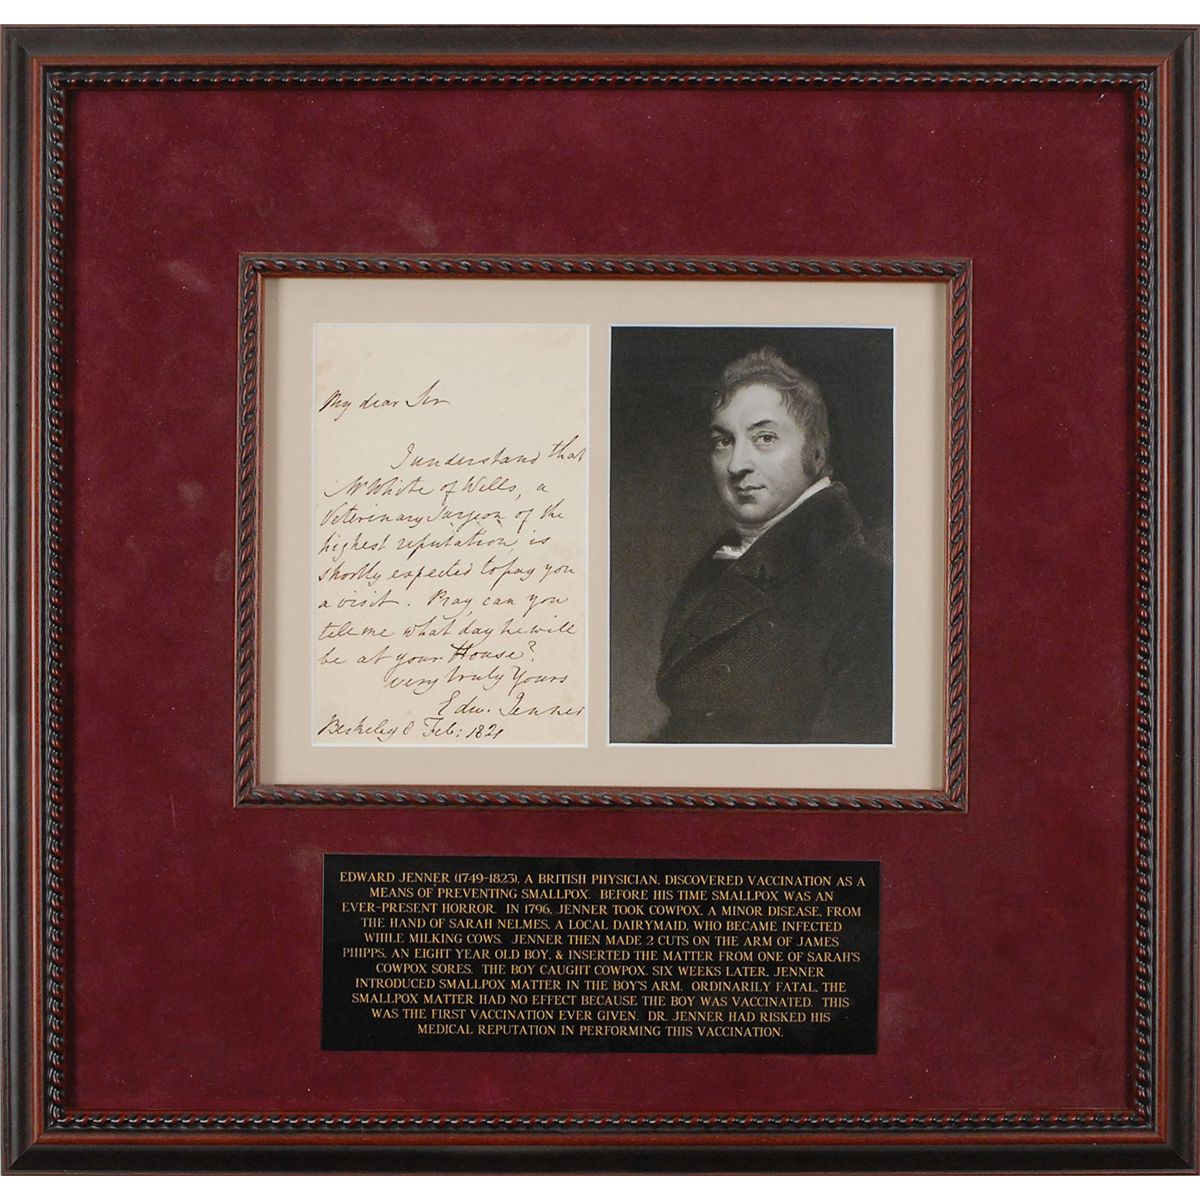 My dear Sir
I understand that
Mr White of Wells, a
Veterinary Surgeon of the
highest reputation, is
shortly expected to pay you
a visit. Pray, can you
tell me what day he will
be at your House?
very truly Yours
Edw. Jenner
Berkeley Feb: 1821
EDWARD JENNER (1749-1823), A BRITISH PHYSICIAN, DISCOVERED VACCINATION AS A
MEANS OF PREVENTING SMALLPOX. BEFORE HIS TIME SMALLPOX WAS AN
EVER-PRESENT HORROR. IN 1796, JENNER TOOK COWPOX, A MINOR DISEASE, FROM
THE HAND OF SARAH NELMES, A LOCAL DAIRYMAID, WHO BECAME INFECTED
WHILE MILKING COWS. JENNER THEN MADE 2 CUTS ON THE ARM OF JAMES
PHIPPS, AN EIGHT YEAR OLD BOY, & INSERTED THE MATTER FROM ONE OF SARAH'S
COWPOX SORES. THE BOY CAUGHT COWPOX. SIX WEEKS LATER, JENNER
INTRODUCED SMALLPOX MATTER IN THE BOY'S ARM. ORDINARILY FATAL, THE
SMALLPOX MATTER HAD NO EFFECT BECAUSE THE BOY WAS VACCINATED. THIS
WAS THE FIRST VACCINATION EVER GIVEN. DR. JENNER HAD RISKED HIS
MEDICAL REPUTATION IN PERFORMING THIS VACCINATION.